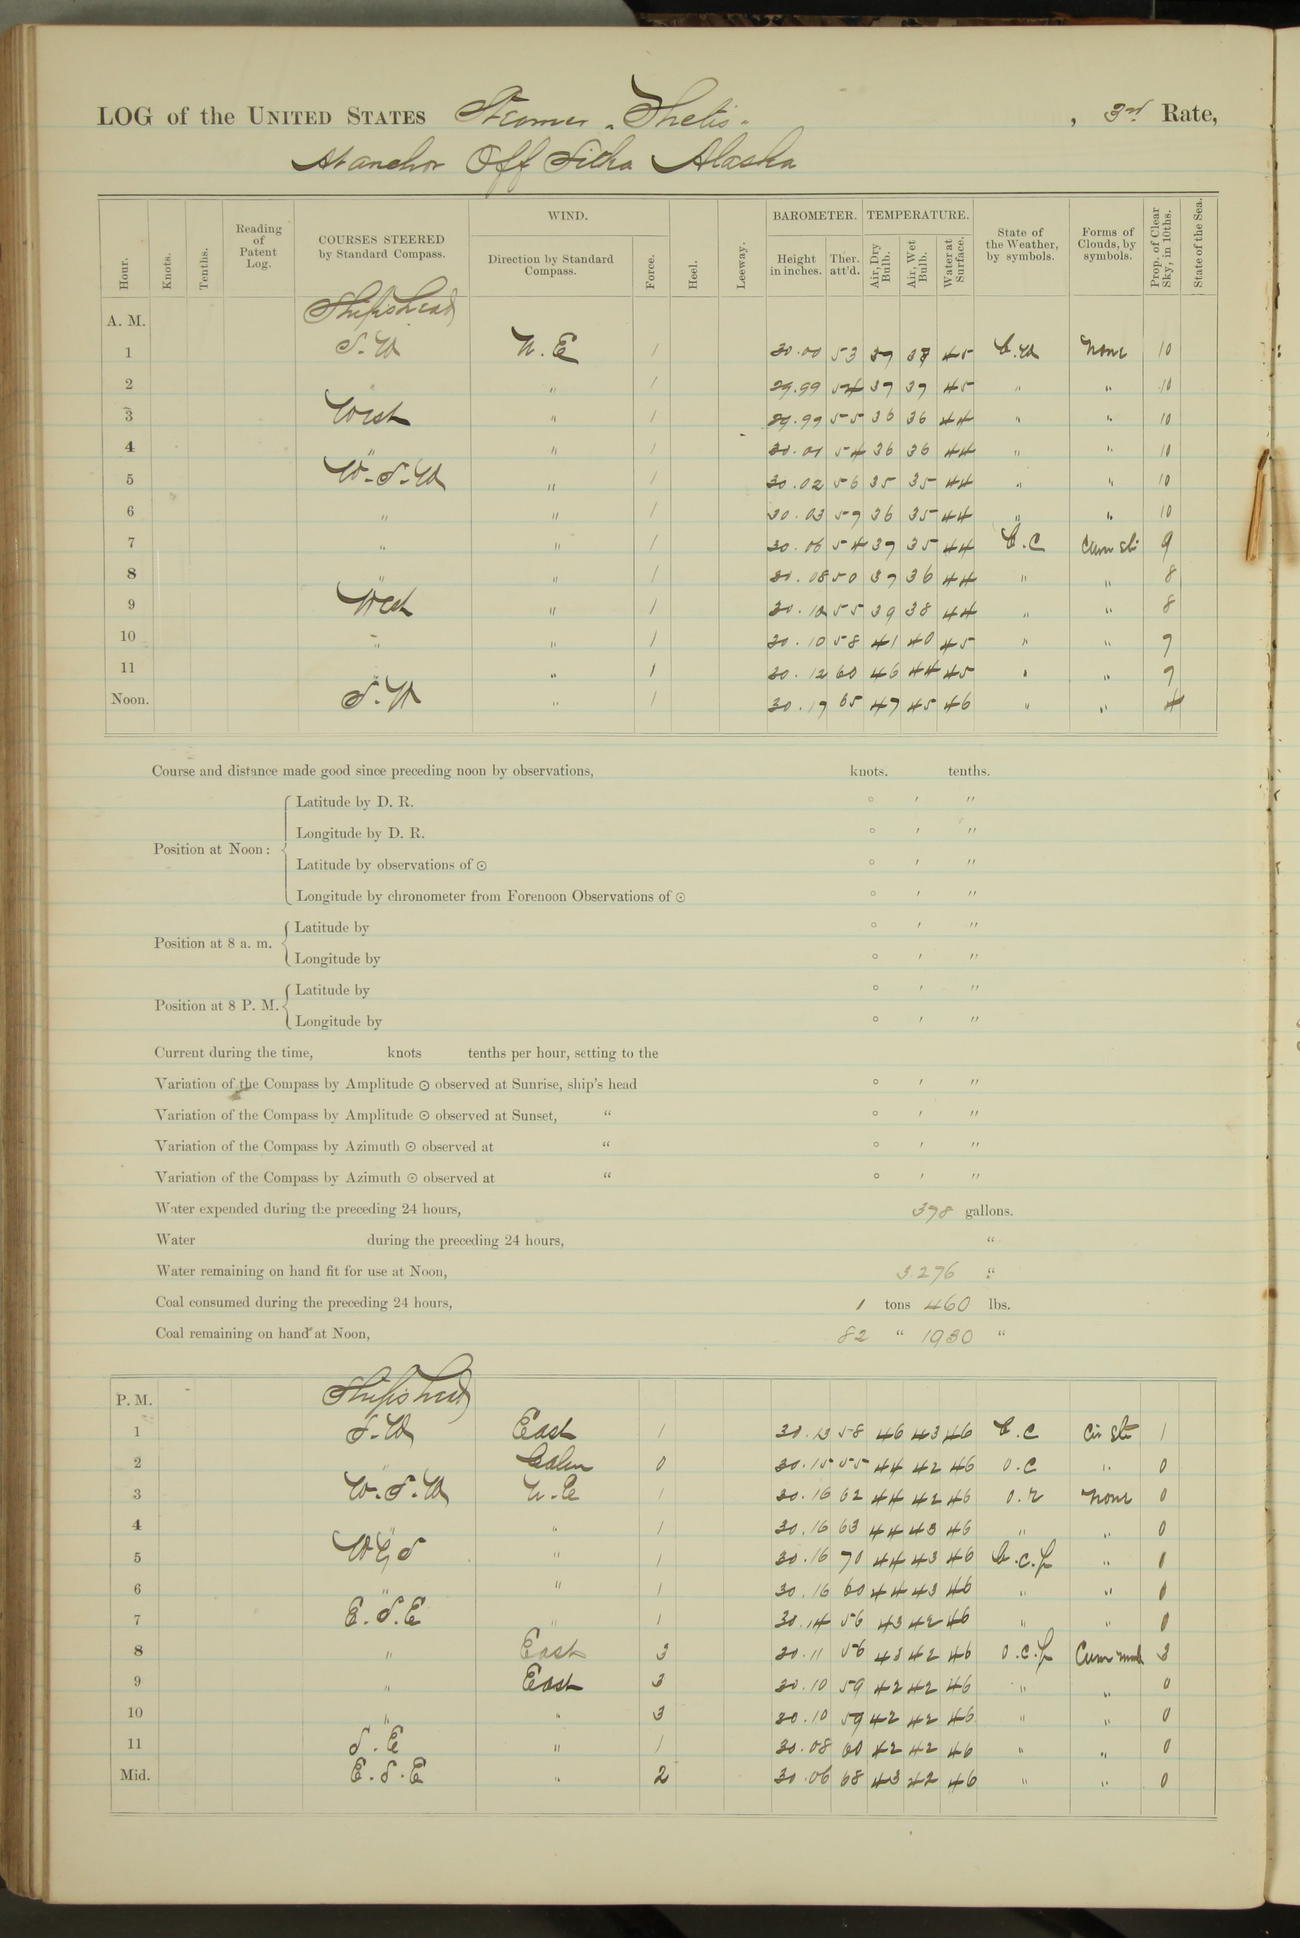 LOG of the UNITED STATES Steamer "Thetis" , 3rd Rate,
At anchor Off Sitka Alaska
Hour. Knots. Tenths. Reading of Patent Log. COURSES STEERED by Standard Compass. WIND. Direction by Standard Compass. Force. Heel. Leeway. BAROMETER. Height in inches. Ther. att'd. TEMPERATURE. Air, Dry Bulb. Air, Wet Bulb. Water at Surface. State of the Weather, by symbols. Forms of Clouds, by symbols. Prop. of Clear Sky, in 10ths. State of the Sea.
A. M. Ship's head
1 S.W N.E 1 30.00 53 37 37 45 None 10
2 " " 1 29.99 54 37 37 45 " " 10
3 West " 1 29.99 55 36 36 44 " " 10
4 " " 1 30.01 54 36 36 44 " " 10
5 W.S.W " 1 30.02 56 35 35 44 " " 10
6 " " 1 30.03 57 36 35 44 " " 10
7 " " 1 30.06 54 37 35 44 b.c Cum str 9
8 " " 1 30.08 50 37 36 44 " " 8
9 West " 1 30.10 55 39 38 44 " " 8
10 " " 1 30.10 58 41 40 45 " " 7
11 " " 1 30.12 60 46 44 45 " " 7
Noon. S.W " 1 30.17 65 47 45 46 " " 4
Course and distance made good since preceding noon by observations, knots. tenths.
Position at Noon: Latitude by D. R. ° ′ ″
Longitude by D. R. ° ′ ″
Latitude by observations of ☉ ° ′ ″
Longitude by chronometer from Forenoon Observations of ☉ ° ′ ″
Position at 8 a. m. Latitude by ° ′ ″
Longitude by ° ′ ″
Position at 8 P. M. Latitude by ° ′ ″
Longitude by ° ′ ″
Current during the time, knots tenths per hour, setting to the
Variation of the Compass by Amplitude ☉ observed at Sunrise, ship's head ° ′ ″
Variation of the Compass by Amplitude ☉ observed at Sunset, " ° ′ ″
Variation of the Compass by Azimuth ☉ observed at " ° ′ ″
Variation of the Compass by Azimuth ☉ observed at " ° ′ ″
Water expended during the preceding 24 hours, 398 gallons.
Water during the preceding 24 hours, "
Water remaining on hand fit for use at Noon, 3.276 "
Coal consumed during the preceding 24 hours, 1 tons 460 lbs.
Coal remaining on hand at Noon, 82 " 1930 "
P. M. Ship's head
1 S.W East 1 30.13 58 46 43 46 b.c Cir str 1
2 " Calm 0 30.15 55 44 42 46 o.c " 0
3 W.S.W N.E 1 30.16 62 44 42 46 o.r None 0
4 " " 1 30.16 63 44 43 46 " " 0
5 " 1 30.16 70 44 43 46 " 0
6 " " 1 30.16 60 44 43 46 " " 0
7 E.S.E " 1 30.14 56 43 42 46 " " 0
8 " East 3 30.11 56 43 42 46 3
9 " East 3 30.10 59 42 42 46 " " 0
10 " " 3 30.10 59 42 42 46 " " 0
11 S.E " 1 30.08 60 42 42 46 " " 0
Mid. E.S.E " 2 30.06 68 43 42 46 " " 0